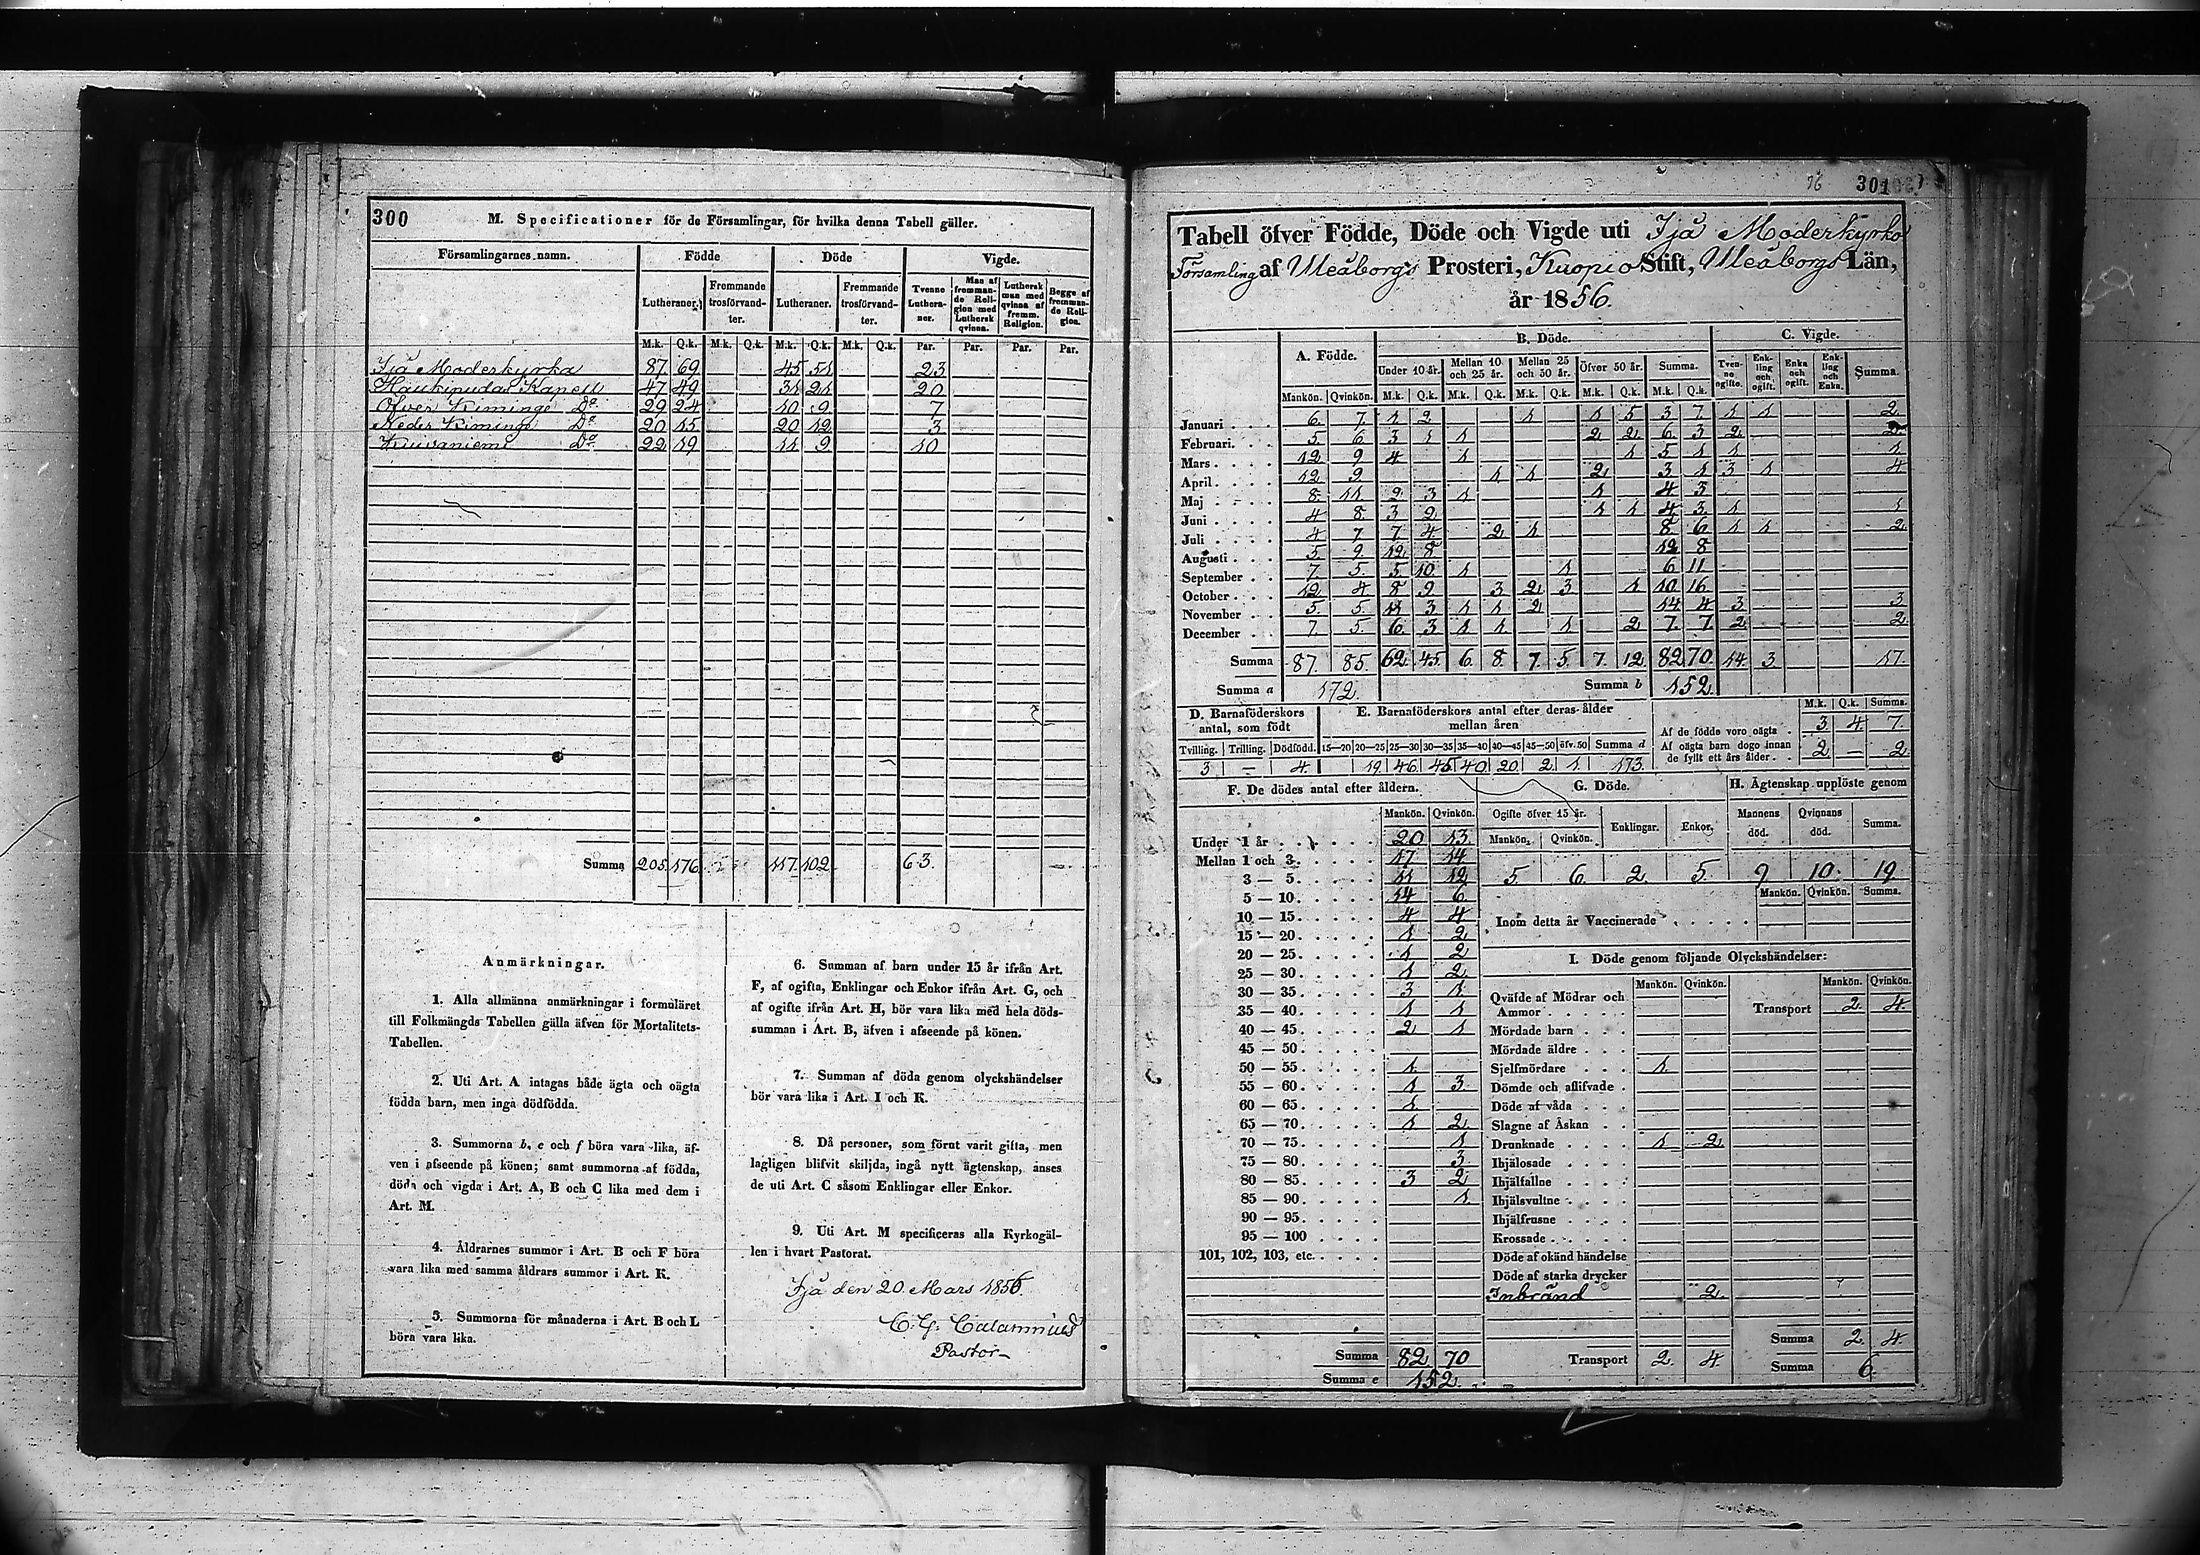 300 M. Specificationer för de Församlingar, för hvilka denna Tabell gäller.
Församlingarnes namn. Födde Döde Vigde.
Lutheraner. Fremmande trosförvandter. Lutheraner. Fremmande trosförvandter. Tvenne Lutheraner. Man af fremmande Religion med Luthersk qvinna. Luthersk man med qvinna af fremm. Religion. Begge af fremmande Religion.
M.k. Q.k. M.k. Q.k. M.k. Q.k. M.k. Q.k. Par. Par. Par. Par.
Ijå Moderkyrka 87 69 45 51 23
Haukipudas Kapell 47 49 31 21 20
Öfver Kiminge Do 29 24 10 9 7
Neder Kiminge Do 20 15 20 12 3
Kuivaniemi Do 22 19 11 9 10
Summa 205 176 117 102 63.
Anmärkningar.
1. Alla allmänna anmärkningar i formuläret
till Folkmängds Tabellen gälla äfven för Mortalitets-
Tabellen.
2. Uti Art. A intagas både ägta och oägta
födda barn, men inga dödfödda.
3. Summorna b, e och f böra vara lika, äf-
ven i afseende på könen; samt summorna af födda,
döda och vigda i Art. A, B och C lika med dem i
Art. M.
4. Åldrarnes summor i Art. B och F böra
vara lika med samma åldrars summor i Art. K.
5. Summorna för månaderna i Art. B och L
böra vara lika.
6. Summan af barn under 15 år ifrån Art.
F, af ogifta, Enklingar och Enkor ifrån Art. G, och
af ogifte ifrån Art. H, bör vara lika med hela döds-
summan i Art. B, äfven i afseende på könen.
7. Summan af döda genom olyckshändelser
bör vara lika i Art. I och K.
8. Då personer, som förut varit gifta, men
lagligen blifvit skiljda, ingå nytt ägtenskap, anses
de uti Art. C såsom Enklingar eller Enkor.
9. Uti Art. M specificeras alla Kyrkogäl-
len i hvart Pastorat.
Ijå den 20 Mars 1856.
Calamnius
Pastor
76 301
Tabell öfver Födde, Döde och Vigde uti Ijå Moderkyrko
Församling af Uleåborgs Prosteri, Kuopio Stift, Uleåborgs Län,
år 1856.
A. Födde. B. Döde. C. Vigde.
Under 10 år. Mellan 10 och 25 år. Mellan 25 och 50 år. Öfver 50 år. Summa. Tvenne ogifte. Enkling och ogift. Enka och ogift. Enkling och Enka. Summa.
Mankön. Qvinkön. M.k. Q.k. M.k. Q.k. M.k. Q.k. M.k. Q.k. M.k. Q.k.
Januari 6. 7. 1 2 1 1 5 3 7. 1 1 2
Februari. 5 6 3 1 1 2 2 6. 3 2 2
Mars 12 9 4 1 1 5 1 1 1
April 12 9. 1 1 2 3 1 3 1 4
Maj 8. 11 2 3 1 1 4 3
Juni 4 8. 3 2 1 1 4 3 1 1
Juli 4 7 7 4 2 1 8 6 1 1 2
Augusti 5. 9. 12 8 12 8
September 7 5. 5 10 1 1 6 11
October 12 4 8 9 3 2 3 1 10 16
November 5. 5 11 3 1 1 2 14 4 3 3
December 7. 5. 6. 3 1 1 1 2 7. 7 2 2
Summa 87. 85. 62 45 6. 8. 7. 5. 7. 12 82 70 14 3 17.
Summa a 172. Summa b 152
D. Barnaföderskors antal, som födt
E. Barnaföderskors antal efter deras ålder mellan åren
M.k. Q.k. Summa.
Af de födde voro oägta 3 4 7.
Af oägta barn dogo innan de fyllt ett års ålder 2 — 2
Tvilling. Trilling. Dödfödd. 15—20 20—25 25—30 30—35 35—40 40—45 45—50 öfv. 50 Summa d
3. — 4. 19. 46. 45 40 20. 2 1. 173.
F. De dödes antal efter åldern. G. Döde. H. Ägtenskap upplöste genom
Mankön. Qvinkön. Ogifte öfver 15 år. Enklingar. Enkor. Mannens död. Qvinnans död. Summa.
Mankön. Qvinkön.
5. 6. 2. 5. 9. 10. 19.
Mankön. Qvinkön. Summa.
Inom detta år Vaccinerade
Under 1 år 20 13
Mellan 1 och 3. 17 14
3 — 5. 11 12
5 — 10. 14 6
10 — 15. 4 4
15 — 20. 1 2
20 — 25. 1 2
25 — 30. 1 2
30 — 35. 3 1
35 — 40. 1 1
40 — 45. 2 1
45 — 50.
50 — 55. 1.
55 — 60. 1 3.
60 — 65. 1.
65 — 70. 1 2
70 — 75. 1
75 — 80. 3
80 — 85. 3 2
85 — 90. 1.
90 — 95.
95 — 100
101, 102, 103, etc.
Summa 82 70
Summa e 152.
I. Döde genom följande Olyckshändelser:
Mankön. Qvinkön. Mankön. Qvinkön.
Qväfde af Mödrar och Ammor Transport 2 4.
Mördade barn
Mördade äldre
Sjelfmördare 1.
Dömde och aflifvade
Döde af våda
Slagne af Åskan
Drunknade 1 2
Ihjälosade
Ihjälfallne
Ihjälsvultne
Ihjälfrusne
Krossade
Döde af okänd händelse
Döde af starka drycker
Inbränd 2.
Summa 2 4.
Transport 2 4. Summa 6